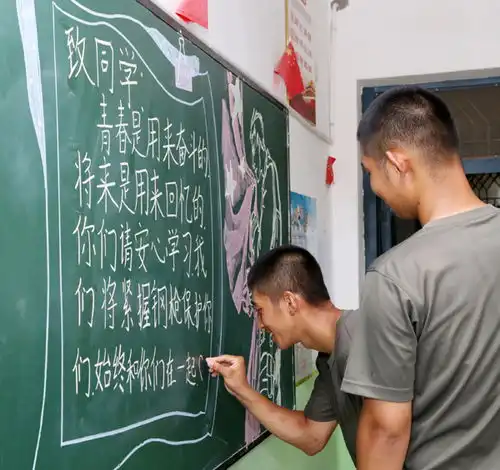 致同学:
青春是用来奋斗的,
将来是用来回忆的
你们请安心学习我
们将紧握钢枪保护你
们始终和你们在一起